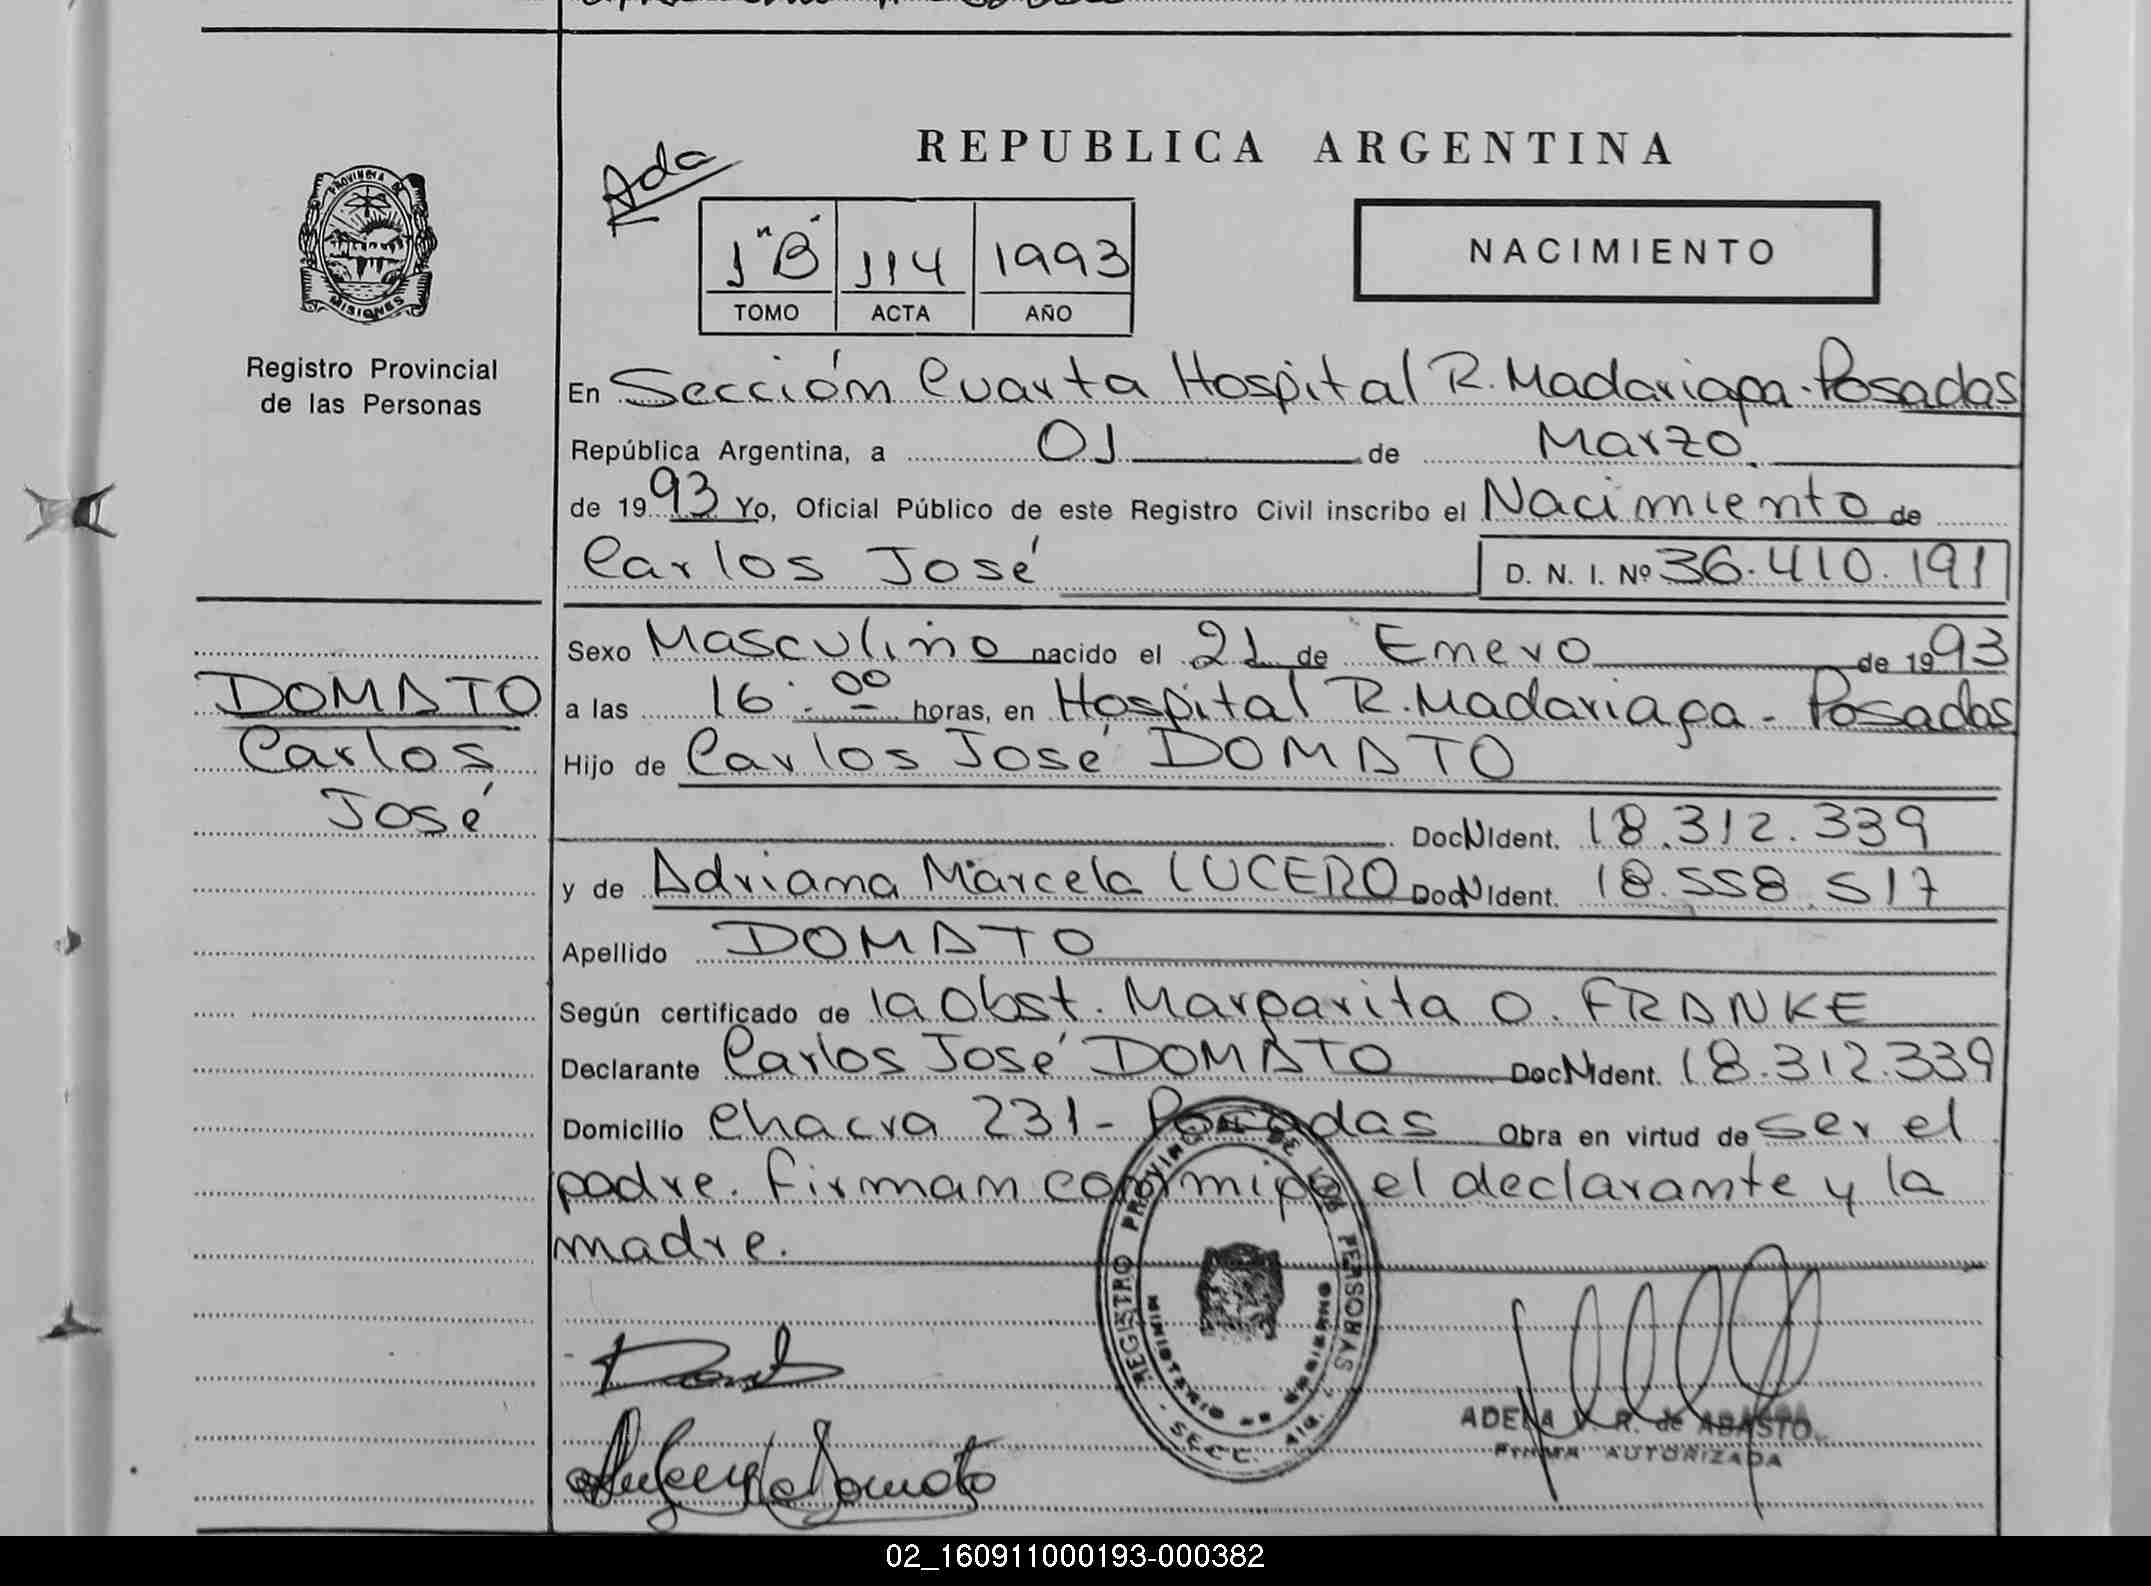 REPUBLICA ARGENTINA
Ada
1 "B" 114 1993
TOMO ACTA AÑO
NACIMIENTO
PROVINCIA DE
MISIONES
Registro Provincial
de las Personas
En Sección Cuarta Hospital R. Madariaga - Posadas
República Argentina, a 01 de Marzo
de 1993 Yo, Oficial Público de este Registro Civil inscribo el Nacimiento de
Carlos José D. N. I. Nº 36.410.191
Sexo Masculino nacido el 21 de Enero de 1993
DOMATO
Carlos
José
a las 16:00 horas, en Hospital R. Madariaga - Posadas
Hijo de Carlos José DOMATO
Doc N Ident. 18.312.339
y de Adriana Marcela LUCERO Doc N Ident. 18.558.517
Apellido DOMATO
Según certificado de la Obst. Margarita O. FRANKE
Declarante Carlos José DOMATO Doc N Ident. 18.312.339
Domicilio Chacra 231 - Posadas Obra en virtud de ser el
padre. Firman conmigo el declarante y la
madre.
REGISTRO PROVINCIAL DE LAS PERSONAS
MINISTERIO DE GOBIERNO
SECC. 4ta.
ADELA R. de ABASTO
FIRMA AUTORIZADA
02_160911000193-000382